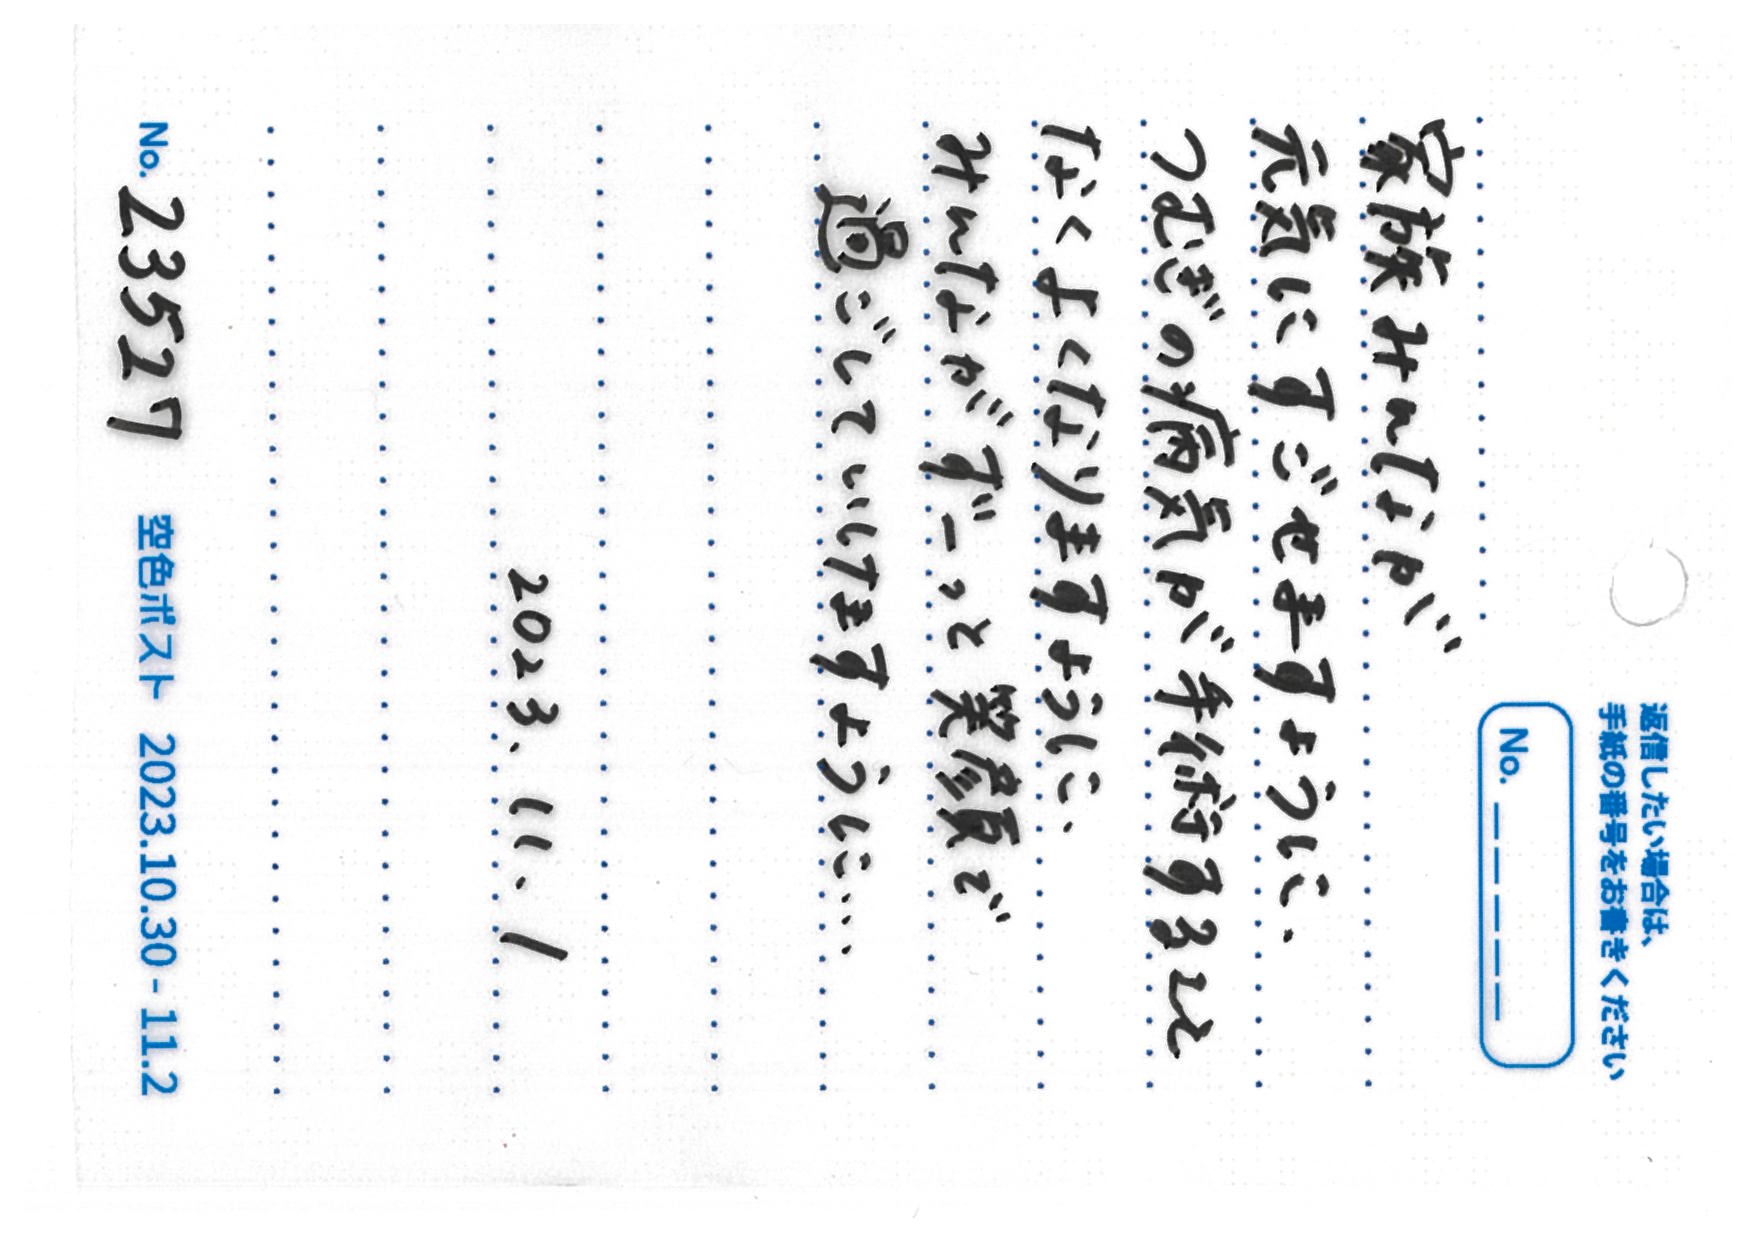 返信したい場合は、
手紙の番号をお書きください
No. _ _ _ _ _
家族みんなが
元気にすごせますように.
つむぎの病気が手術すること
なくよくなりますように.
みんながずーっと笑顔で
過ごしていけますように…
2023. 11. 1
No. 23527 空色ポスト 2023.10.30 - 11.2